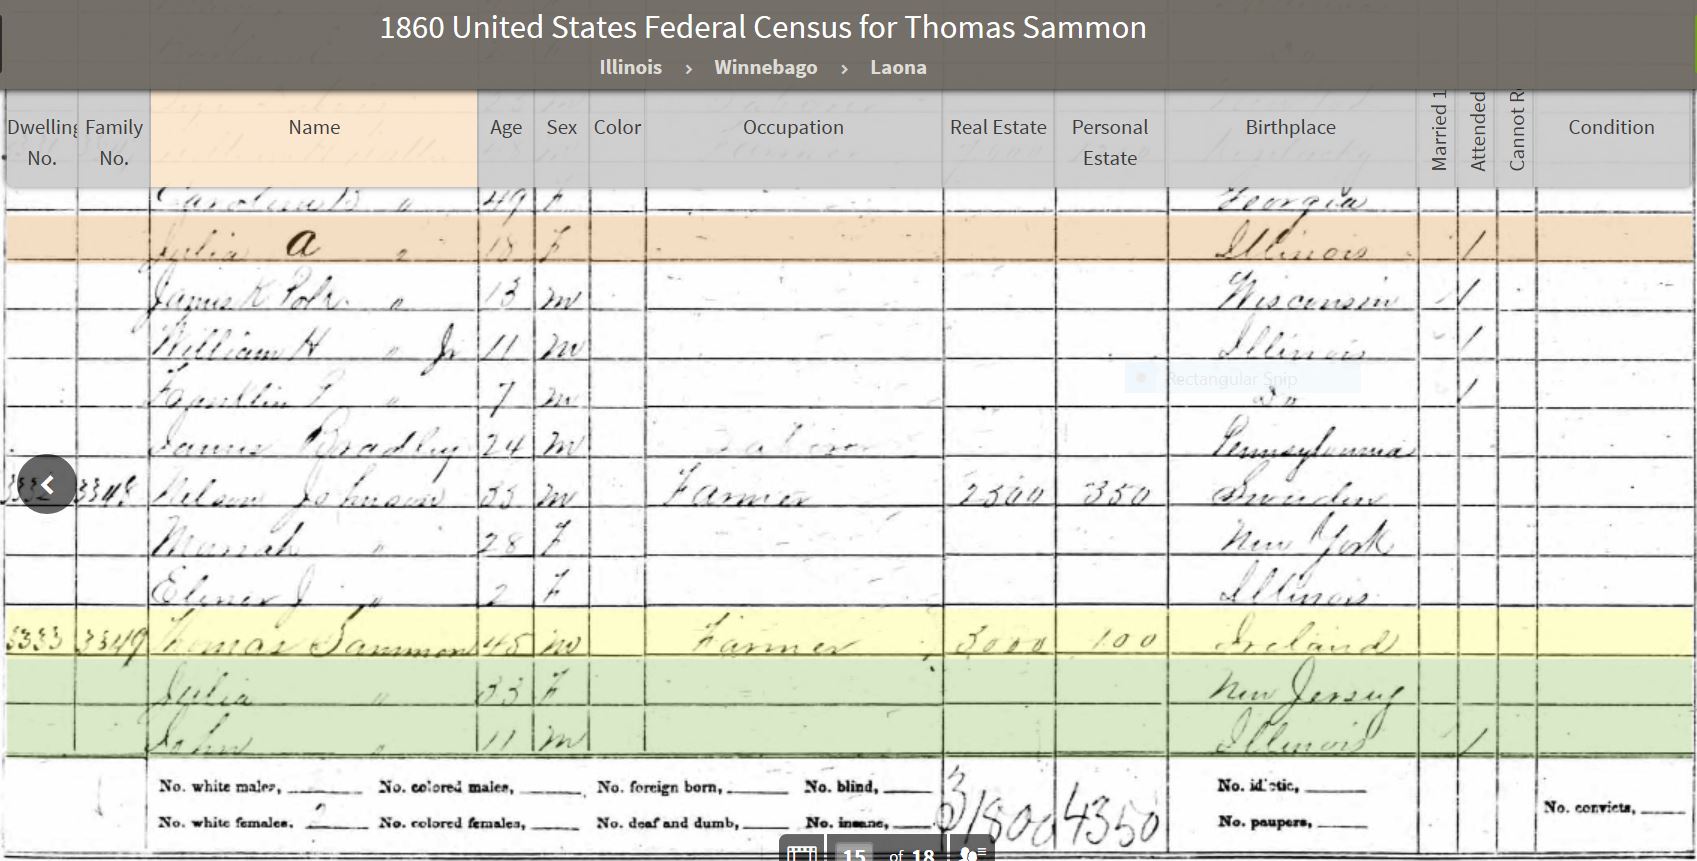 1860 United States Federal Census for Thomas Sammon
Illinois > Winnebago > Laona
Dwelling No. Family No. Name Age Sex Color Occupation Real Estate Personal Estate Birthplace Married 1 Attended Cannot R Condition
Caroline B " 49 F Georgia
Julia a " 18 F Illinois /
James K Polk " 13 m Wisconsin /
William H " Jr 11 m Illinois /
Franklin P " 7 m Do " /
Rectangular Snip
James Bradley 24 m Pennsylvania
3348 Nelson Johnson 33 m Farmer 2500 350 Sweden
Mariah " 28 F New York
Eliner J " 2 F Illinois
3333 3349 Thomas Sammon 45 m Farmer 3000 100 Ireland
Julia " 33 F New Jersey
John " 11 m Illinois /
No. white males, No. colored males, No. foreign born, No. blind, No. idiotic,
No. convicts,
No. white females. 2 No. colored females, No. deaf and dumb, No. insane, 31800 4350 No. paupers,
15 of 18